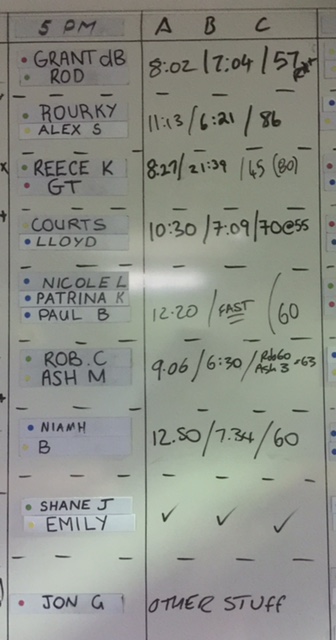 5 PM A B C
GRANT dB 8:02 / 7:04 / 57
ROD
ROURKY 11:13 / 6:21 / 86
ALEX S
REECE K 8:27 / 21:39 / 45 (80)
GT
COURTS 10:30 / 7:09 / 70@55
LLOYD
NICOLE L
PATRINA K
PAUL B 12.20 / FAST / 60
ROB.C 9.06 / 6:30 / Rob60
ASH M Ash 3 -63
NIAMH 12.50 / 7.34 / 60
B
SHANE J ✓ ✓ ✓
EMILY
JON G OTHER STUFF